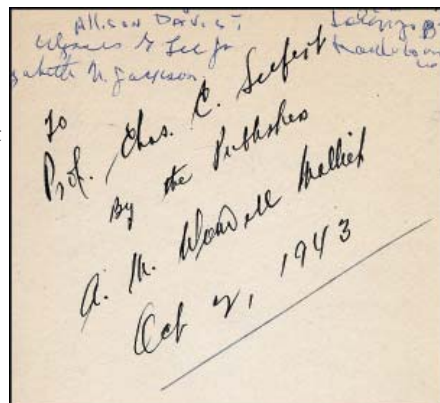 Allison Davis
Ulysses G Lee Jr
zabeth N. Jackson
To
Prof. Chas. C. Seifert
By the Publisher
A. M. Wendell Malliet
Oct 2, 1943